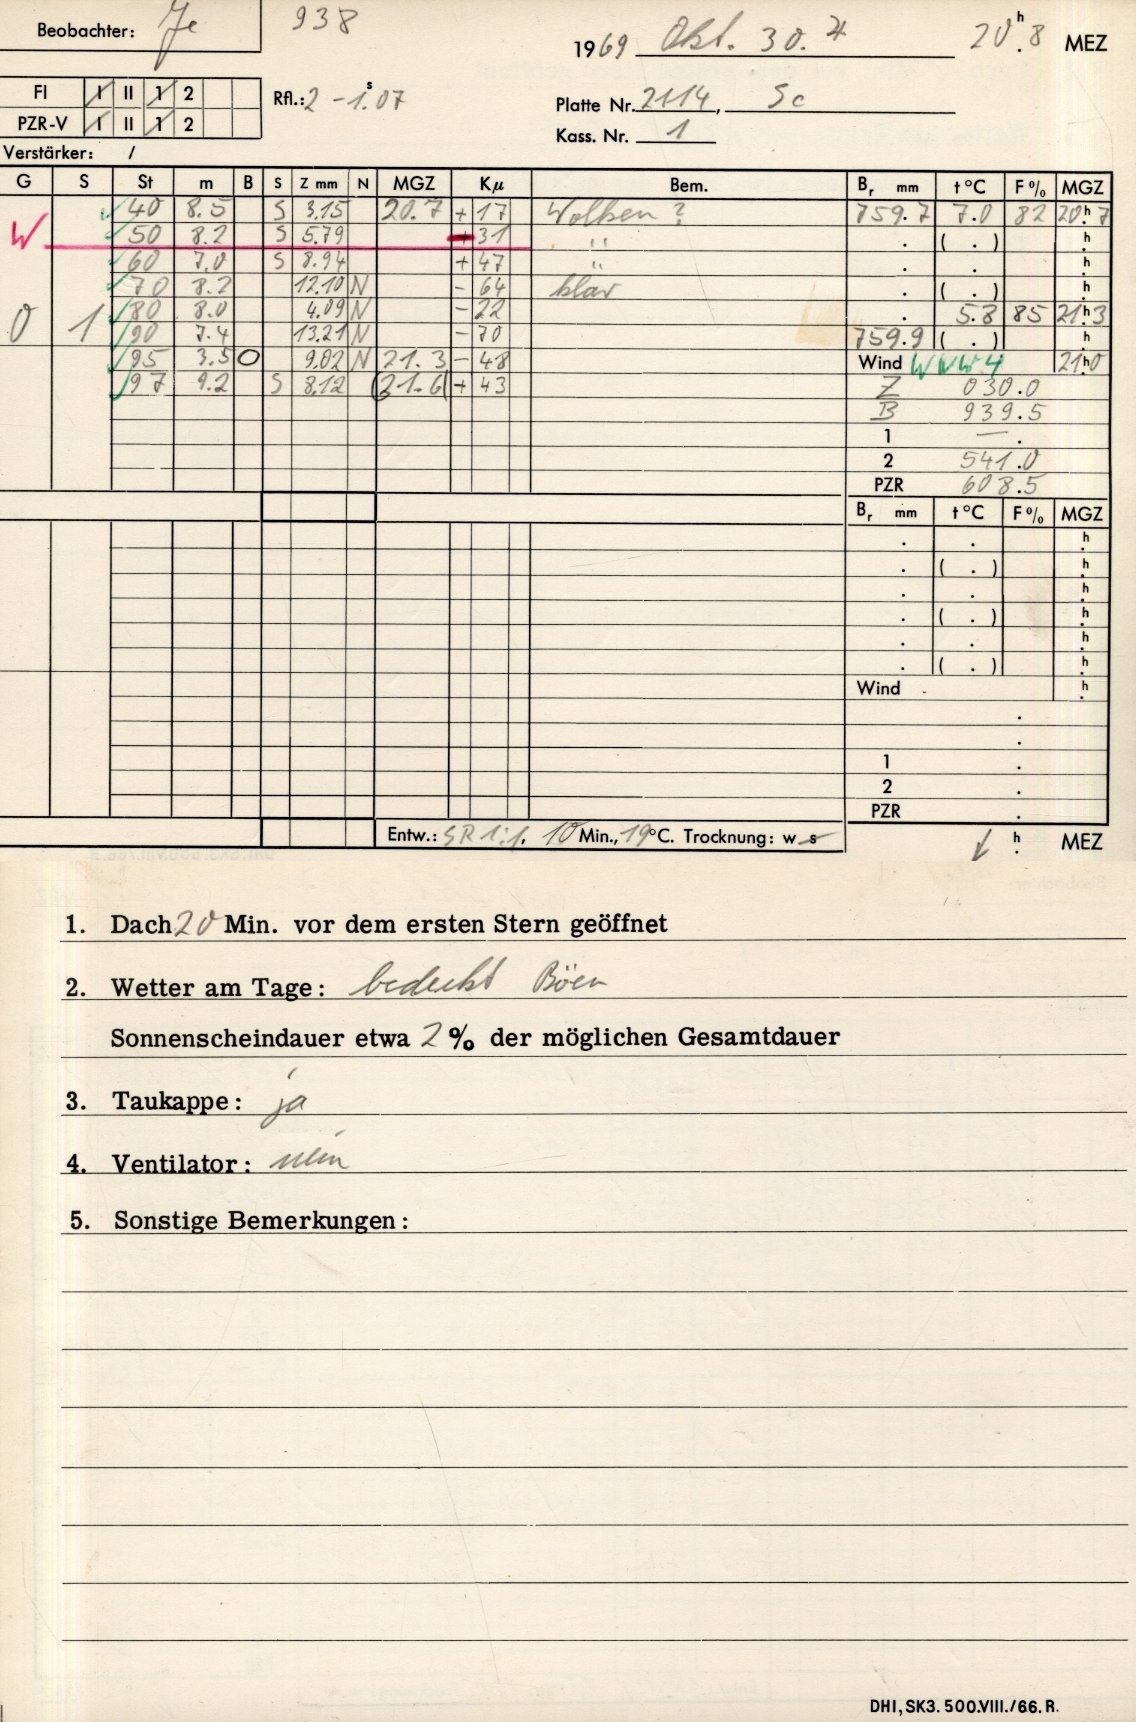 Beobachter: Je 938 1969 Okt. 30. 20h.8 MEZ
FI I II 1 2 Rfl.: 2 -1s.07 Platte Nr. 2114, Sc
PZR-V I II 1 2 Kass. Nr. 1
Verstärker: /
G S St m B S Z mm N MGZ Kμ Bem. Br mm t°C F% MGZ
40 8.5 S 3.15 20.7 + 17 Wolken ? 759.7 7.0 82 20h.7
W 50 8.2 S 5.79 31 " . ( . ) h.
60 7.0 S 8.94 + 47 " . . h.
70 8.2 12.10 N - 64 klar . ( . ) h.
0 1 80 8.0 4.09 N - 22 . 5.8 85 21h.3
90 7.4 13.21 N - 70 759.9 ( . ) h.
95 3.5 O 9.02 N 21.3 - 48 Wind WNW 4 21h.0
97 9.2 S 8.12 (21.6) + 43 Z 030.0
B 939.5
1 — .
2 541.0
PZR 608.5
Br mm t°C F% MGZ
. . h.
. ( . ) h.
. . h.
. ( . ) h.
. . h.
. ( . ) h.
Wind h.
.
.
1 .
2 .
PZR .
Entw.: SR 1:1, 10 Min., 19°C. Trocknung: w s h. MEZ
1. Dach 20 Min. vor dem ersten Stern geöffnet
2. Wetter am Tage: bedeckt Böen
Sonnenscheindauer etwa 2 % der möglichen Gesamtdauer
3. Taukappe: ja
4. Ventilator: nein
5. Sonstige Bemerkungen:
DHI, SK3. 500.VIII./66. R.